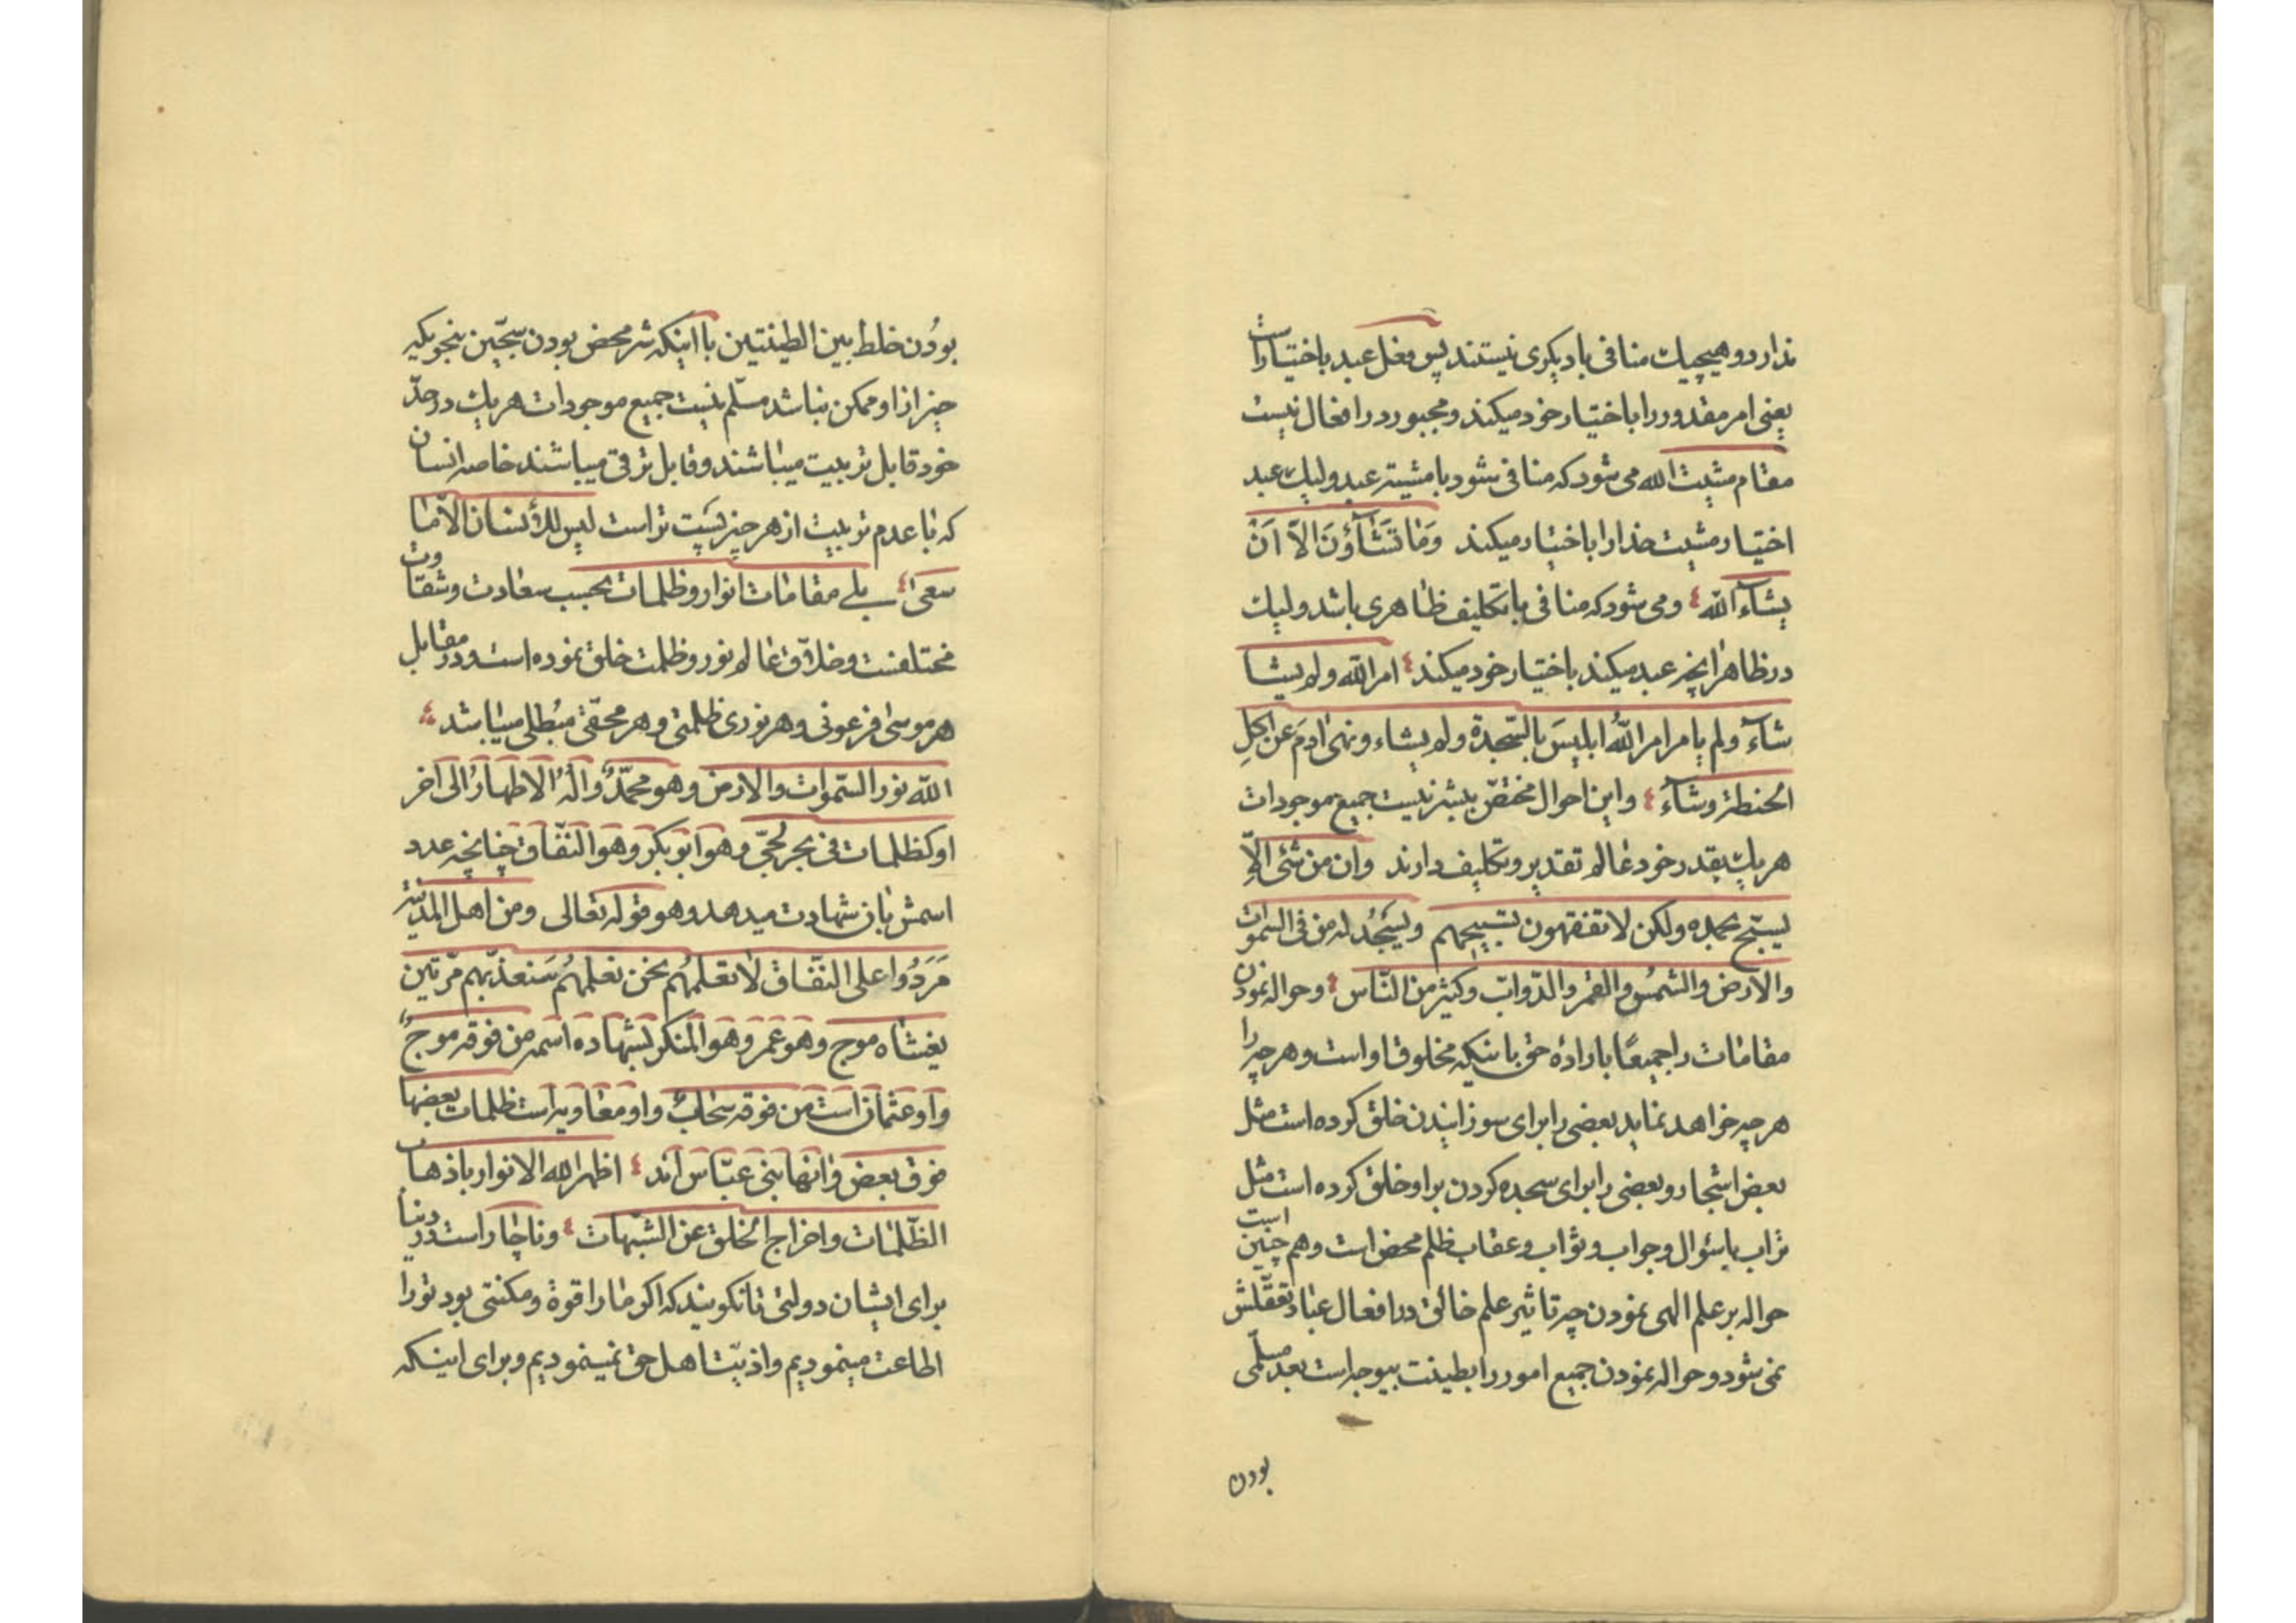 ندارد و هیچیك منافی با دیکری نیستند پس فعل عبد باختیار است
یعنی امر مقدور را باختیار خود میکند و مجبور در افعال نیست
مقام مشیت الله می شود که منافی شود با مشیة عبد ولیك عبد
اختیار مشیت خدا را باختیار میکند وَمَا تَشَآؤُنَ اِلاّ اَنْ
یشآء الله و می شود که منافی با تکلیف ظاهری باشد ولیك
در ظاهر انچه عبد میکند باختیار خود میکند امر الله ولم یشا
شآء ولم یامر امر اللهُ ابلیسَ بالسّجدة ولم یشاء ونهی ادمَ عن اکلِ
الحنطة وشآءُ واین احوال مختصّ ببشر نیست جمیع موجودات
هریك بقدر خود عالم تقدیر و تکلیف دارند وان من شئی الاّ
یسبّح بحمده ولکن لا تفقهون تسبیحهم ویَسجُد له من فی السموات
والارض والشمسُ والقمر والدّوابّ وکثیر من النّاس وحواله نمودن
مقامات را جمیعًا باراده حق باینکه مخلوق او است و هر چه را
هر چه خواهد نماید بعضی را برای سوزانیدن خلق کرده است مثل
بعض اشجار و بعضی را برای سجده کردن بر او خلق کرده است مثل
تراب با سئوال و جواب و ثواب و عقاب ظلم محض است و هم چنین است
حواله بر علم الهی نمودن چه تاثیر علم خالق در افعال عباد تعقّلش
نمی شود و حواله نمودن جمیع امور را بطینت بیوجه است بعد مسلّمی
بودن
بودُن خلط بین الطینتین با اینکه شر محض بودن سجّین بنحویکه
چیز از او ممکن نباشد مسلّم نیست جمیع موجودات هریك در حدّ
خود قابل تربیت میباشند و قابل ترقی میباشند خاصه انسان
که با عدم تربیت از هر چیز پست تر است لیس للأنسان الاّ ما
سعی بلے مقامات انوار وظلمات بحسب سعادت و شقاوت
مختلفست و خلاّق عالم نور و ظلمت خلق نموده است و در مقابل
هر موسی فرعونی و هر نوری ظلمتی و هر محقّی مبُطلی میباشد
الله نور السّموات والارض وهو محمّدٌ وآلهُ الاطهارُ الی اخر
او کظلمات فی بحر لُجیّ وهو ابو بکر وهو النفّاق چنانچه عدد
اسمش بان شهادت میدهد وهو قوله تعالی ومن اهل المدینة
مَرَدُوا علی النّفاق لا تعلمُهُم نحن نعلمهُم سَنعذّبهم مرّتین
یغشاه موج وهو عُمر وهو المنکر بشهاده اسمه من فوقه موجٌ
واو عثمان است من فوقه سَحابٌ واو معاویه است ظلمات بعضها
فوق بعض وانها بنی عبّاس اند اظهر الله الانوار باذهاب
الظّلمات واخراج الخلق عن الشبّهات وناچار است در دنیا
برای ایشان دولتی تا نکویند که اکر ما را قوة و مکنتی بود تو را
اطاعت مینمودیم و اذیّت اهل حق نمینمودیم و برای اینکه